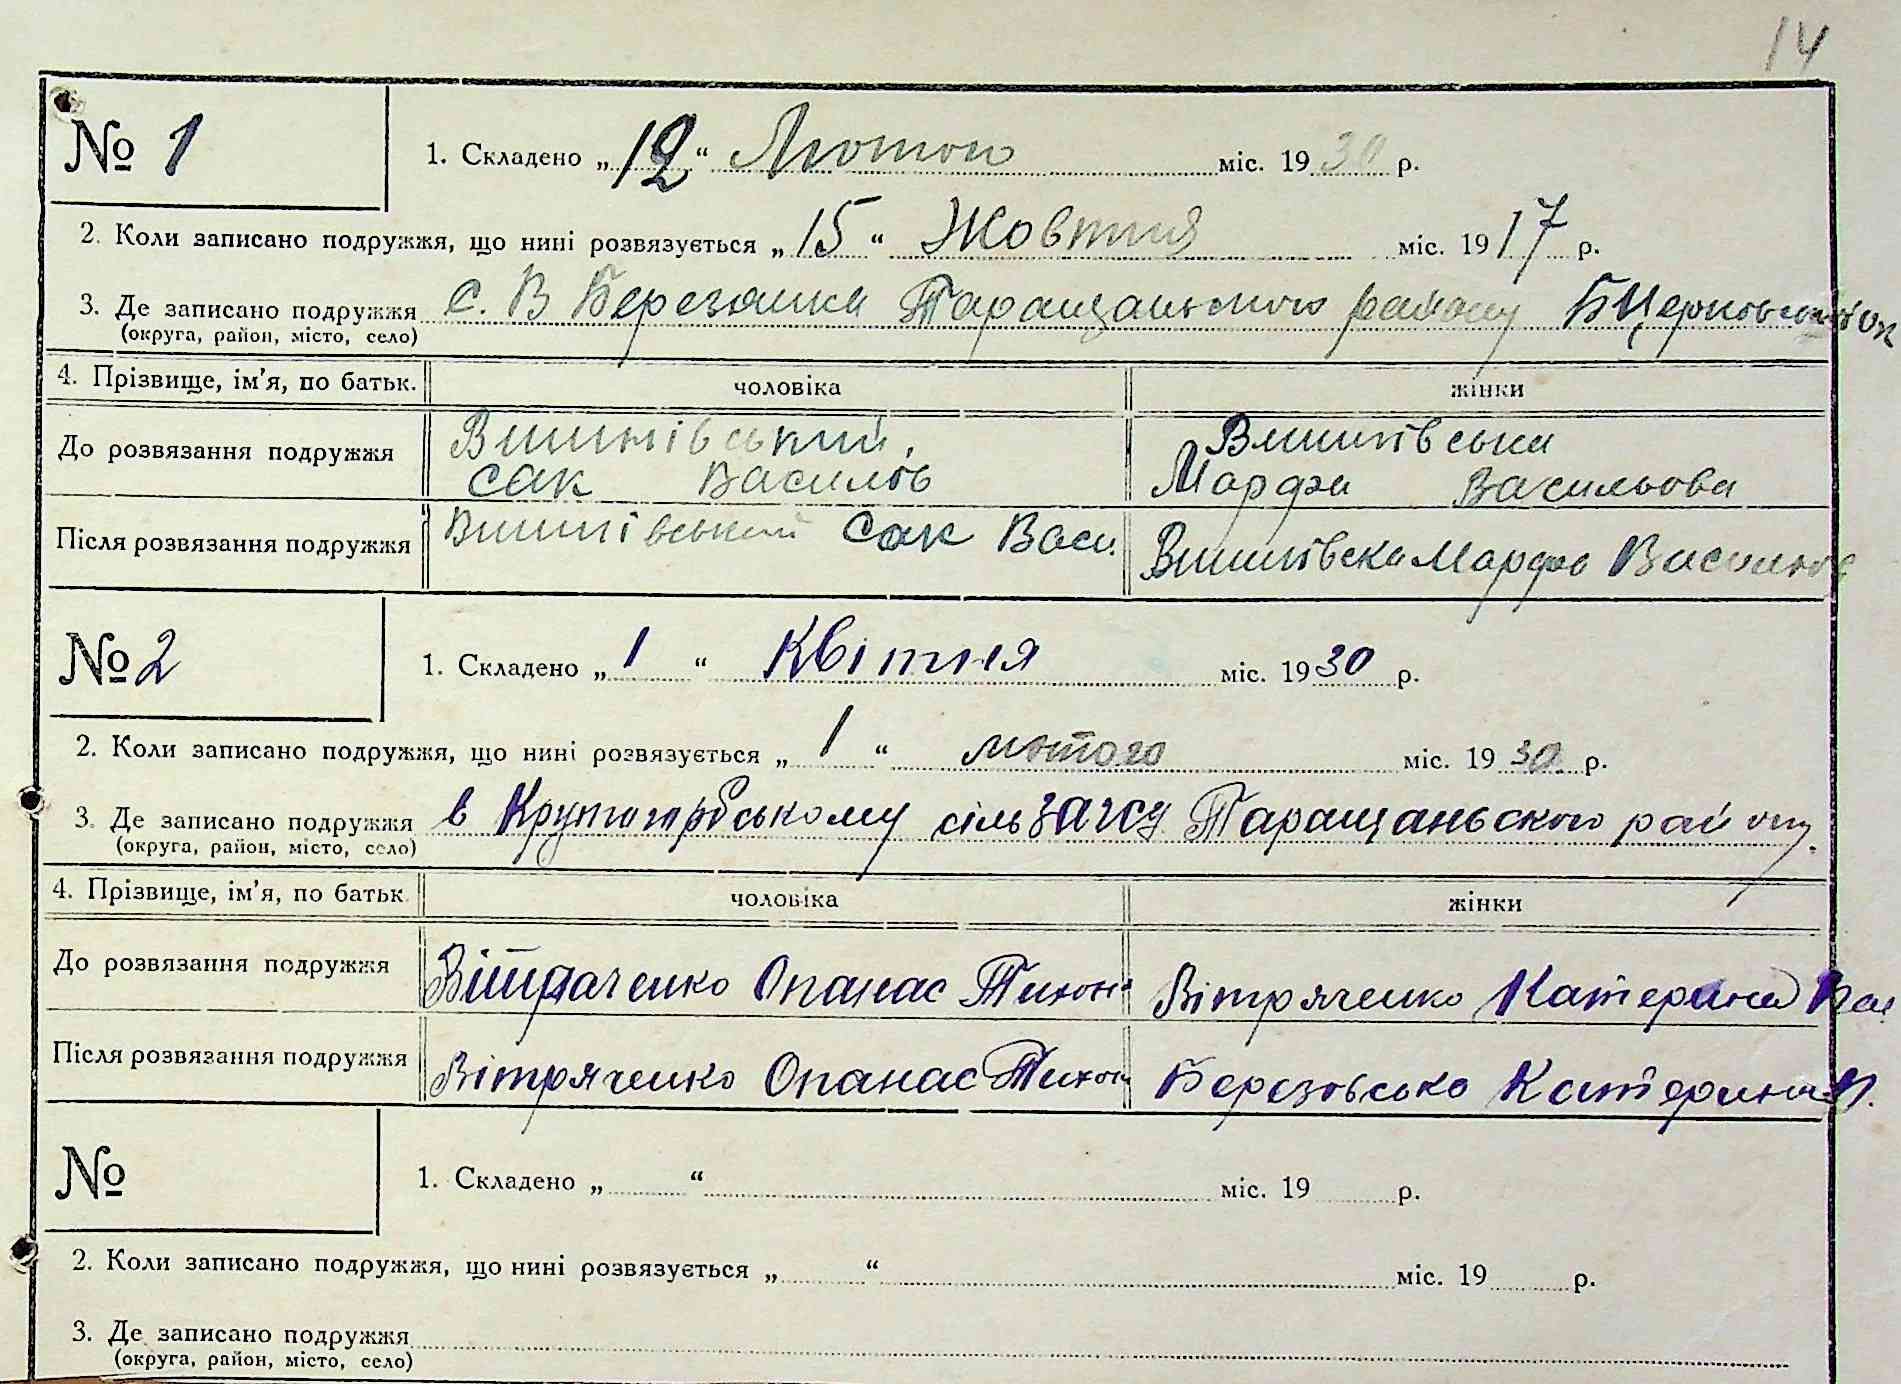 14
№ 1
1. Складено „ 12 “ Лютого міс. 19 30 р.
2. Коли записано подружжя, що нині розвязується „ 15 “ Жовтня міс. 19 17 р.
3. Де записано подружжя с. В Березянка Таращанського району БЦерковської ок
(округа, район, місто, село)
4. Прізвище, ім'я, по батьк. чоловіка жінки
До розвязання подружжя
Вишнівський Вишнівська
Сак Василів Марфа Васильова
Після розвязання подружжя Вишнівський Сак Васи. Вишнівска Марфа
№ 2
1. Складено „ 1 “ Квітня міс. 19 30 р.
2. Коли записано подружжя, що нині розвязується „ 1 “ лютого міс. 19 30 р.
3. Де записано подружжя в сільзагсу Таращанського району.
(округа, район, місто, село)
4. Прізвище, ім'я, по батьк. чоловіка жінки
До розвязання подружжя Вітряченко Опанас Тихон Вітряченко Катерина
Після розвязання подружжя Вітряченко Опанас Тихон Березовсько Катерина
№
1. Складено „ “ міс. 19 р.
2. Коли записано подружжя, що нині розвязується „ “ міс. 19 р.
3. Де записано подружжя
(округа, район, місто, село)